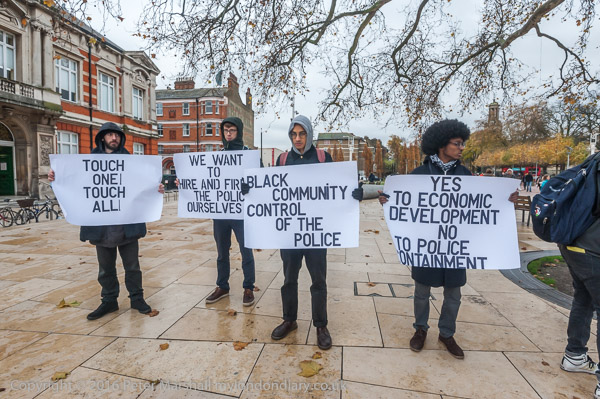 TOUCH
ONE! TOUCH
ALL!
WE WANT TO
HIRE AND FIRE
THE POLICE
OURSELVES
BLACK COMMUNITY
CONTROL
OF THE
POLICE
YES TO ECONOMIC
DEVELOPMENT
NO
TO POLICE
CONTAINMENT
Copyright 2016 Peter Marshall mylondondiary.co.uk